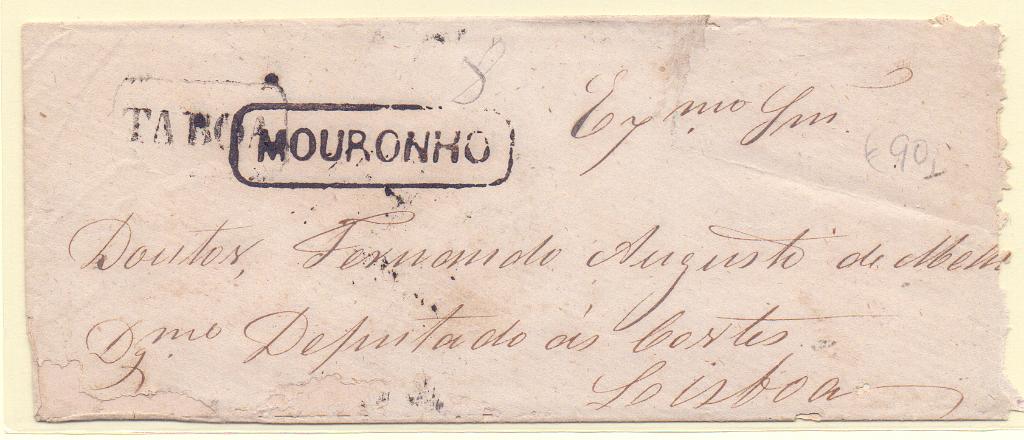 8
TABOA
MOURONHO
Exmo Snr.
Doutor, Fernando Augusto de Mello
Dgmo Deputado ás Cortes
Lisboa